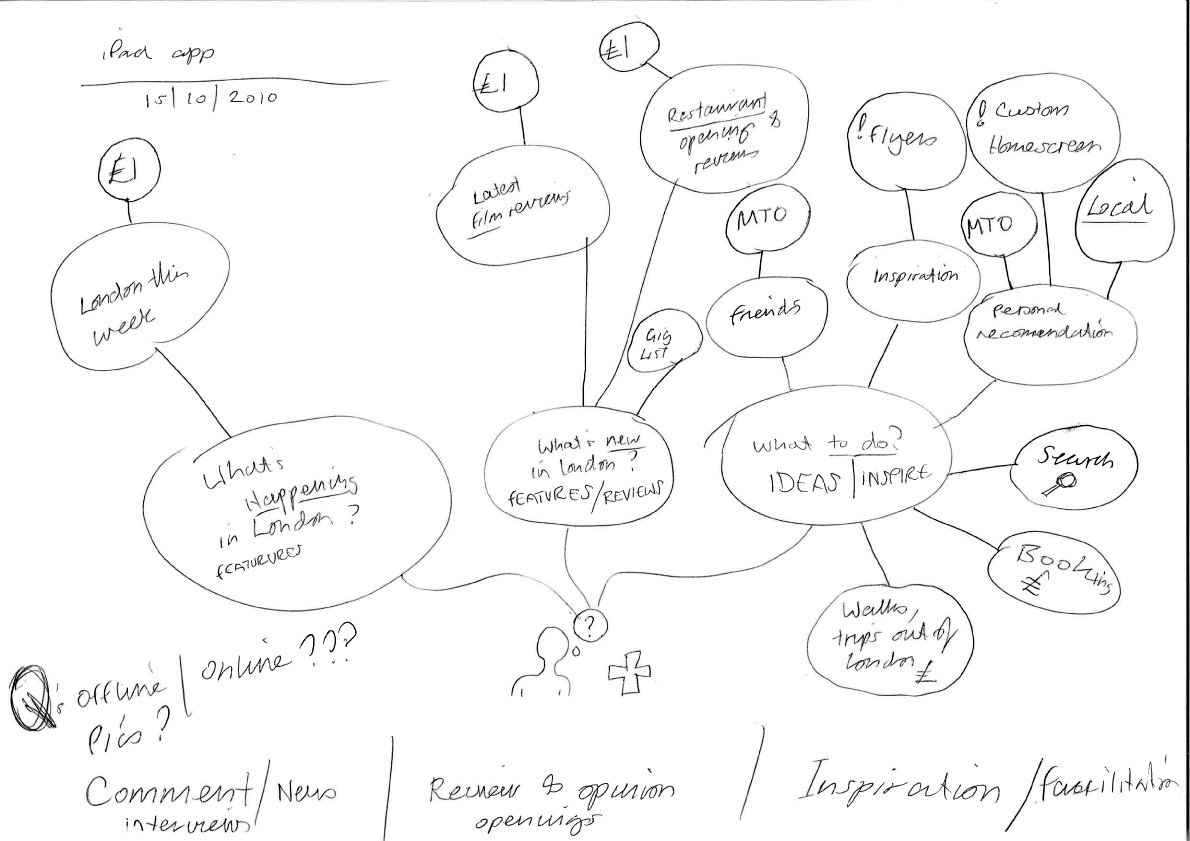 iPad app
15/10/2010
£1
London this
week
What's
Happening
in London?
FEATURURES
£1
Latest
film reviews
£1
Restaurant
opening &
reviews
Gig
LIST
What's new
in London?
FEATURES/REVIEWS
MTO
friends
! Flyers
Inspiration
! Custom
Homescreen
MTO
Local
Personal
recomendation
What to do?
IDEAS/INSPIRE
Search
Booking
£
Walks,
trips out of
London £
?
Q: offline/online???
Pics?
Comment/News
interviews
Review & opinion
openings
Inspiration/facilitation